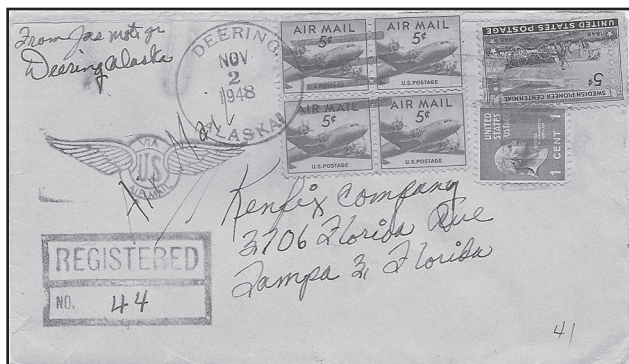 From Jas Moto Jr
Deering Alaska
DEERING
NOV
2
1948
ALASKA
AIR MAIL
5¢
U.S. POSTAGE
AIR MAIL
5¢
U.S. POSTAGE
AIR MAIL
5¢
U.S. POSTAGE
AIR MAIL
5¢
U.S. POSTAGE
UNITED STATES POSTAGE
SWEDISH PIONEER CENTENNIAL
5¢
UNITED
STATES
POSTAGE
1 CENT 1
VIA
US
AIR MAIL
Mail
Kenfix Company
3706 Florida Ave
Tampa 3, Florida
REGISTERED
NO. 44
41